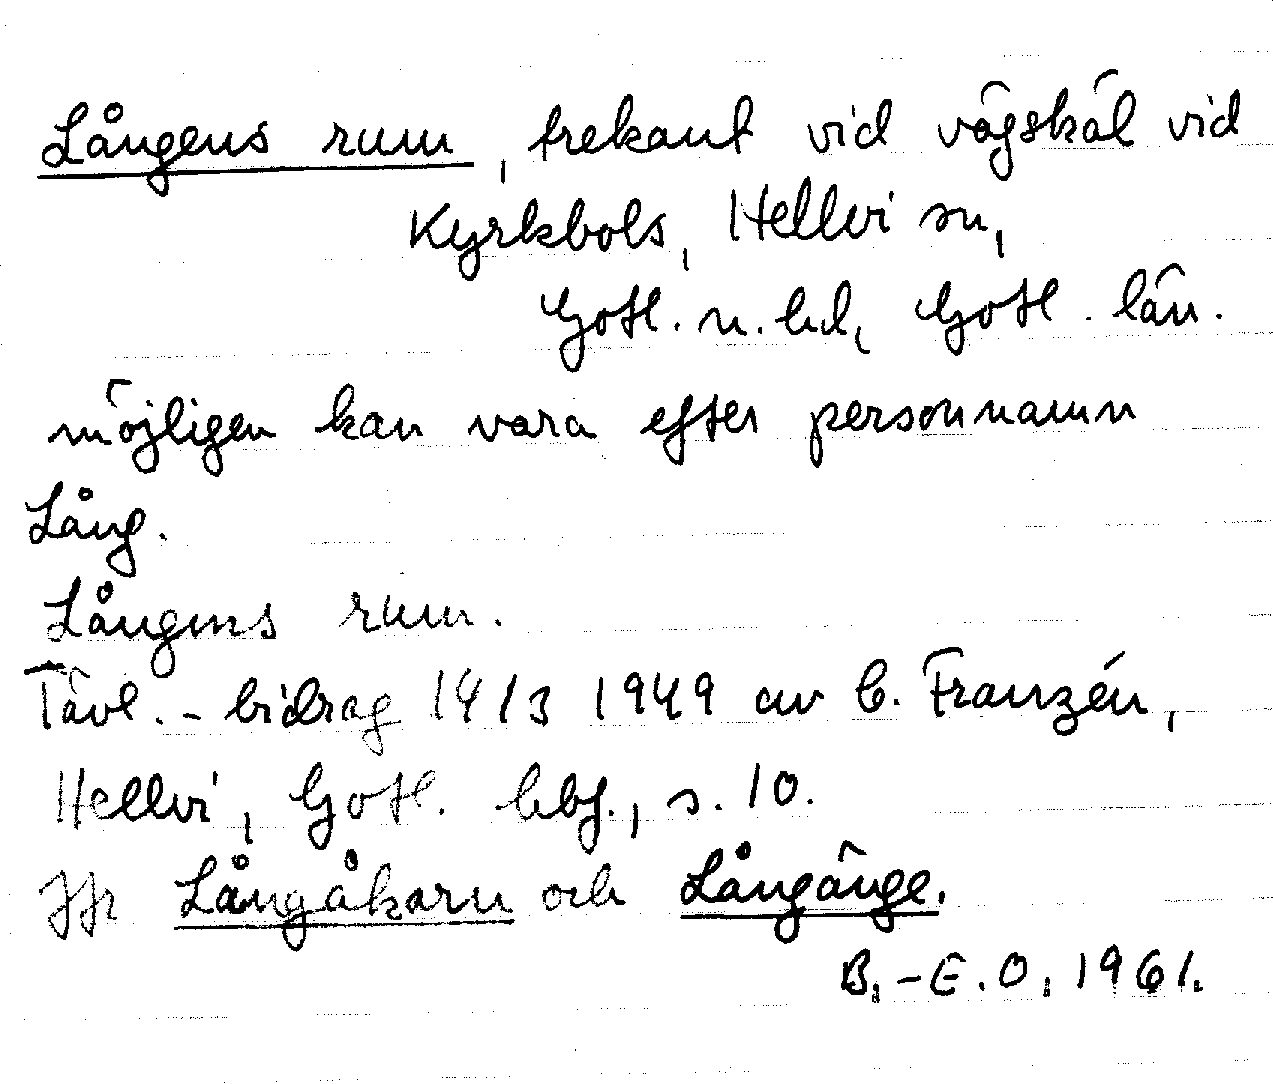 Långens rum, trekant vid vägskäl vid
Kyrkbols, Hellvi sn,
Gotl. n. hd, Gotl. län.
möjligen kan vara efter personnamn
Lång.
Långens rum.
Tävl.-bidrag 14/3 1949 av C. Franzén,
Hellvi, Gotl. hbf., s. 10.
Jfr Långåkarn och Långänge.
B.-E.O. 1961.